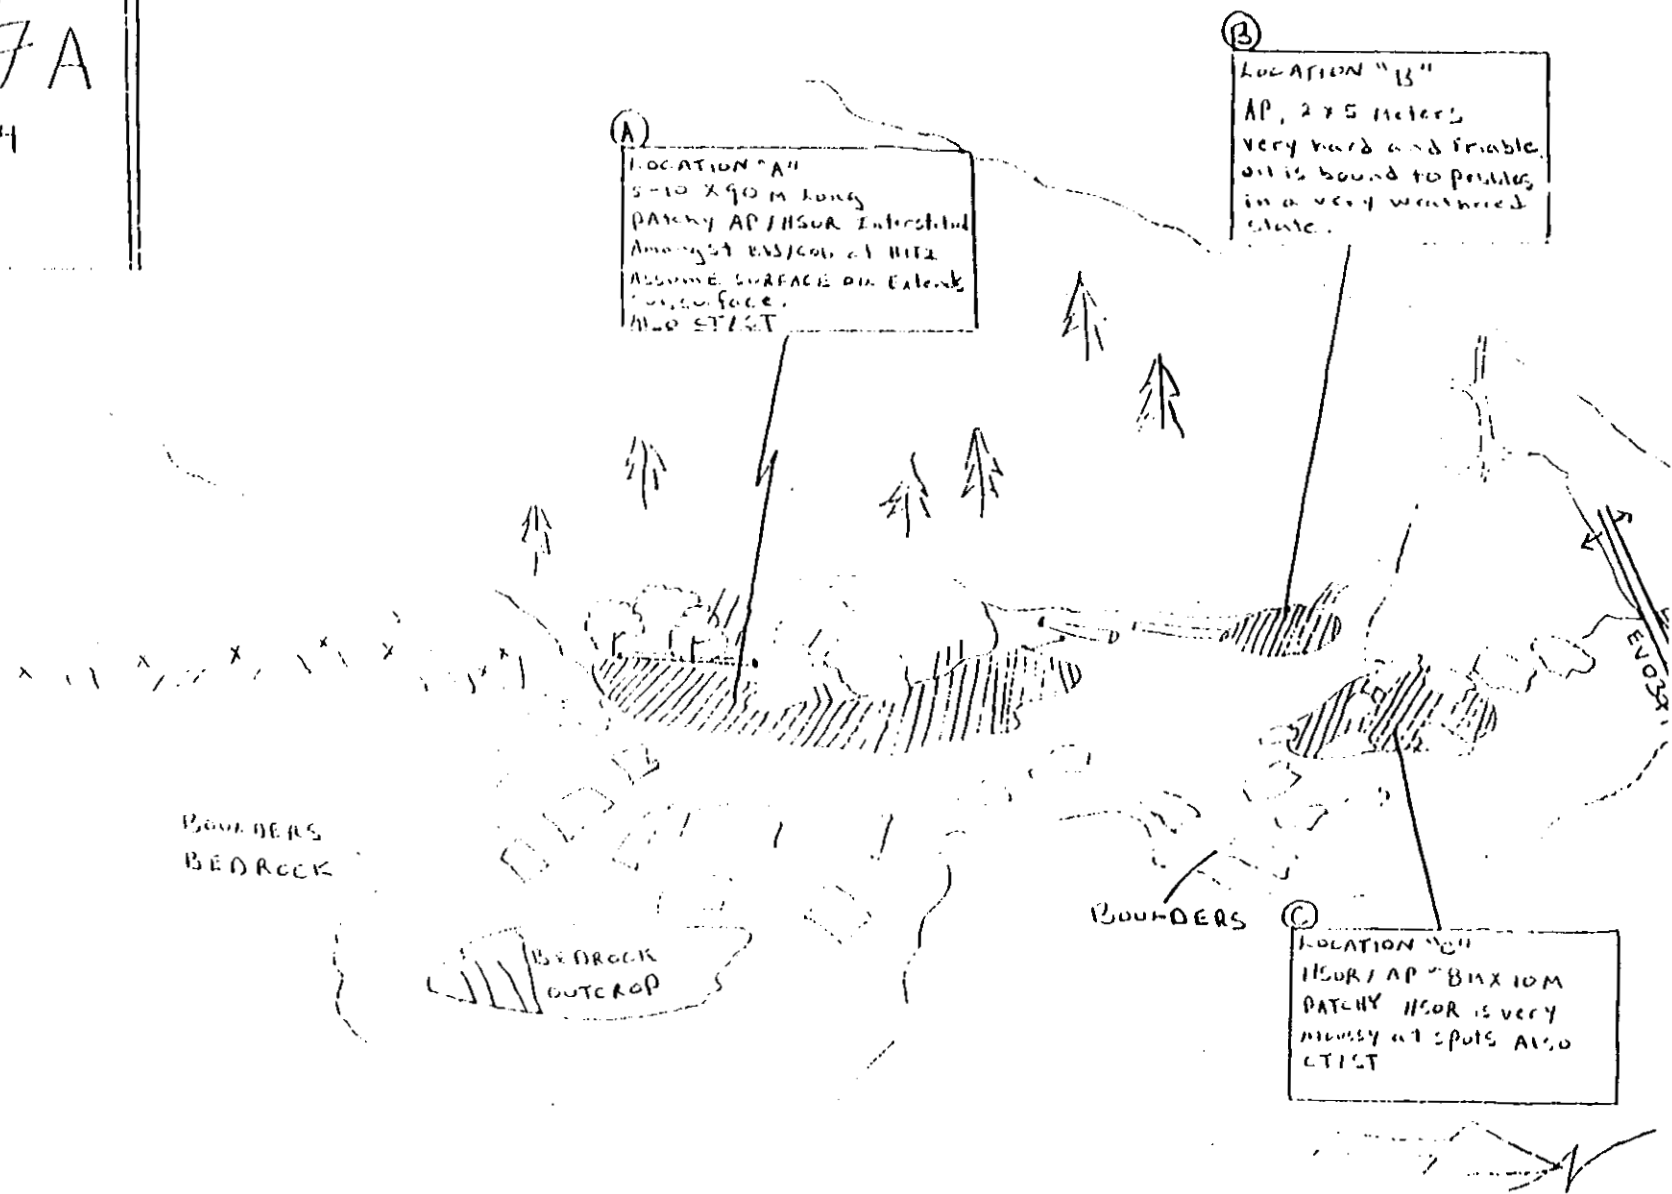 7A
Ⓐ
LOCATION "A"
5-10 X 90 M Long
PAtchy AP/HSOR Interstitial
Amongst at
ASSUME SURFACE Oil Extends
subsurface.
Also CT/ST
Ⓑ
LOCATION "B"
AP, 2 x 5 Meters
very hard and friable.
oil is bound to pebbles
in a very weathered
state.
BOULDERS
BEDROCK
BEDROCK
OUTCROP
BOULDERS
Ⓒ
LOCATION "C"
HSOR/AP ~8M X 10M
PATCHY HSOR is very
moussy at spots Also
CT/ST